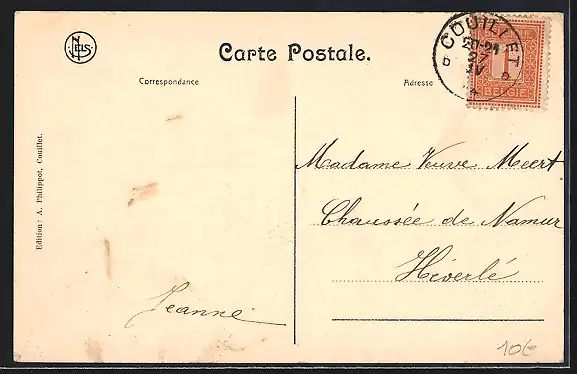 NELS
Carte Postale.
COUILLET
20-21
27
IV
D D
1
BELGIE
Correspondance
Adresse
Edition: A. Philippot, Couillet.
Madame Veuve Meert
Chaussée de Namur
Héverlé
Jeanne
10€